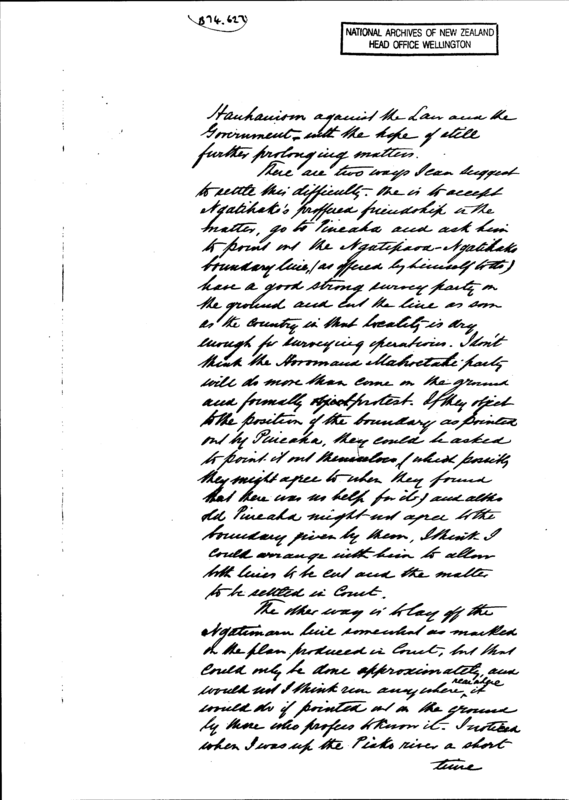 B74.627
NATIONAL ARCHIVES OF NEW ZEALAND
HEAD OFFICE WELLINGTON
Hauhauism against the Law and the
Government with the hope of still
further prolonging matters.
There are two ways I can suggest
to settle this difficulty. One is to accept
Ngatihako's proffered friendship in the
matter, go to Pineaha and ask him
to point out the Ngatipaoa-Ngatihako
boundary line, (as offered by himself to do)
have a good strong survey party on
the ground and cut the line as soon
as the country in that locality is dry
enough for surveying operations. I don't
think the Horomaua Mahoetahi party
will do more than come on the ground
and formally object protest. If they object
to the position of the boundary as pointed
out by Pineaha, they could be asked
to point it out themselves, (which possibly
they might agree to when they found
that there was no help for it) and altho
old Pineaha might not agree to the
boundary given by them, I think I
could arrange with him to allow
both lines to be cut and the matter
to be settled in Court.
The other way is to lay off the
Ngatimaru line somewhat as marked
on the plan produced in Court, but that
could only be done approximately, and
would not I think run anywhere it
would do if pointed out on the ground
by those who profess to know it. I noticed
when I was up the Piako river a short
time